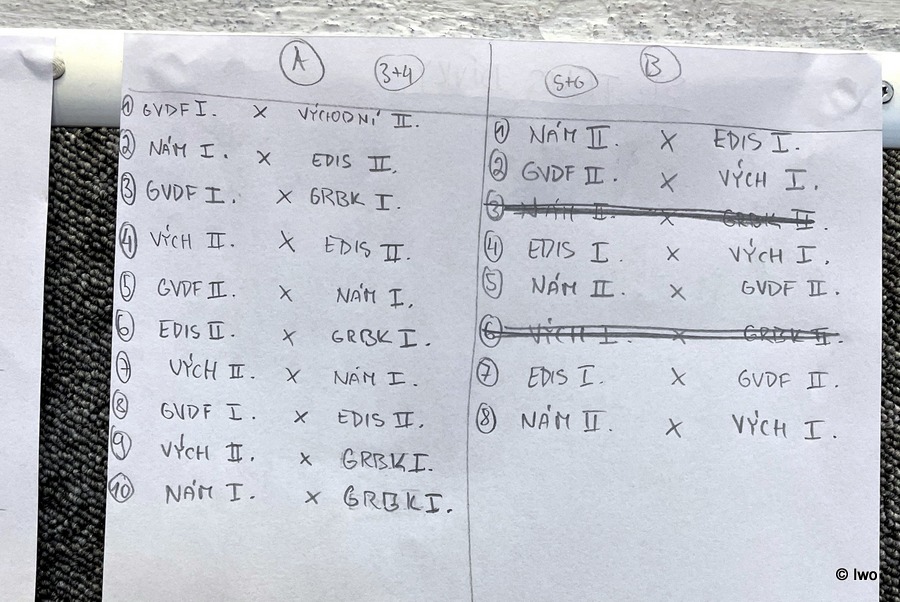 A 3+4
① GVDF I. × VÝCHODNÍ II.
② NÁM I. × EDIS II.
③ GVDF I. × GRBK I.
④ VÝCH II. × EDIS II.
⑤ GVDF II. × NÁM I.
⑥ EDIS II. × GRBK I.
⑦ VÝCH II. × NÁM I.
⑧ GVDF I. × EDIS II.
⑨ VÝCH II. × GRBK I.
⑩ NÁM I. × GRBK I.
5+6 B
① NÁM II. × EDIS I.
② GVDF II. × VÝCH I.
③ NÁM II. × GRBK II
④ EDIS I. × VÝCH I.
⑤ NÁM II. × GVDF II.
⑥ VÝCH I. × GRBK II.
⑦ EDIS I. × GVDF II.
⑧ NÁM II. × VÝCH I.
© Iwo